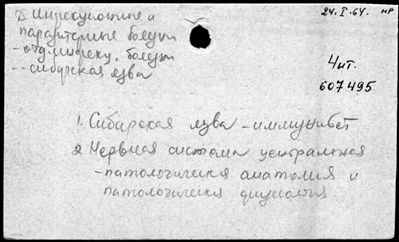 D инфекционные и
паразитарные болезни
- отд. инфекц. болезни
-- сибирская язва
24.I.64. нр
Чит.
607495
1. Сибирская язва - иммунитет
2 Нервная система центральная
- патологическая анатомия и
патологическая физиология